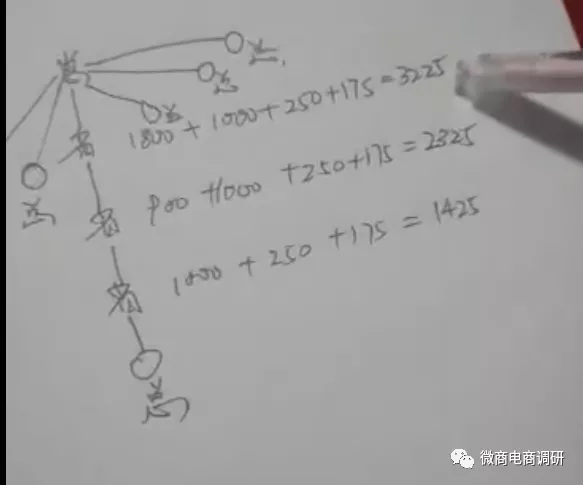 总
省 1800 + 1000 + 250 + 175 = 3225
省 900 + 1000 + 250 + 175 = 2325
省 1000 + 250 + 175 = 1425
微商电商调研